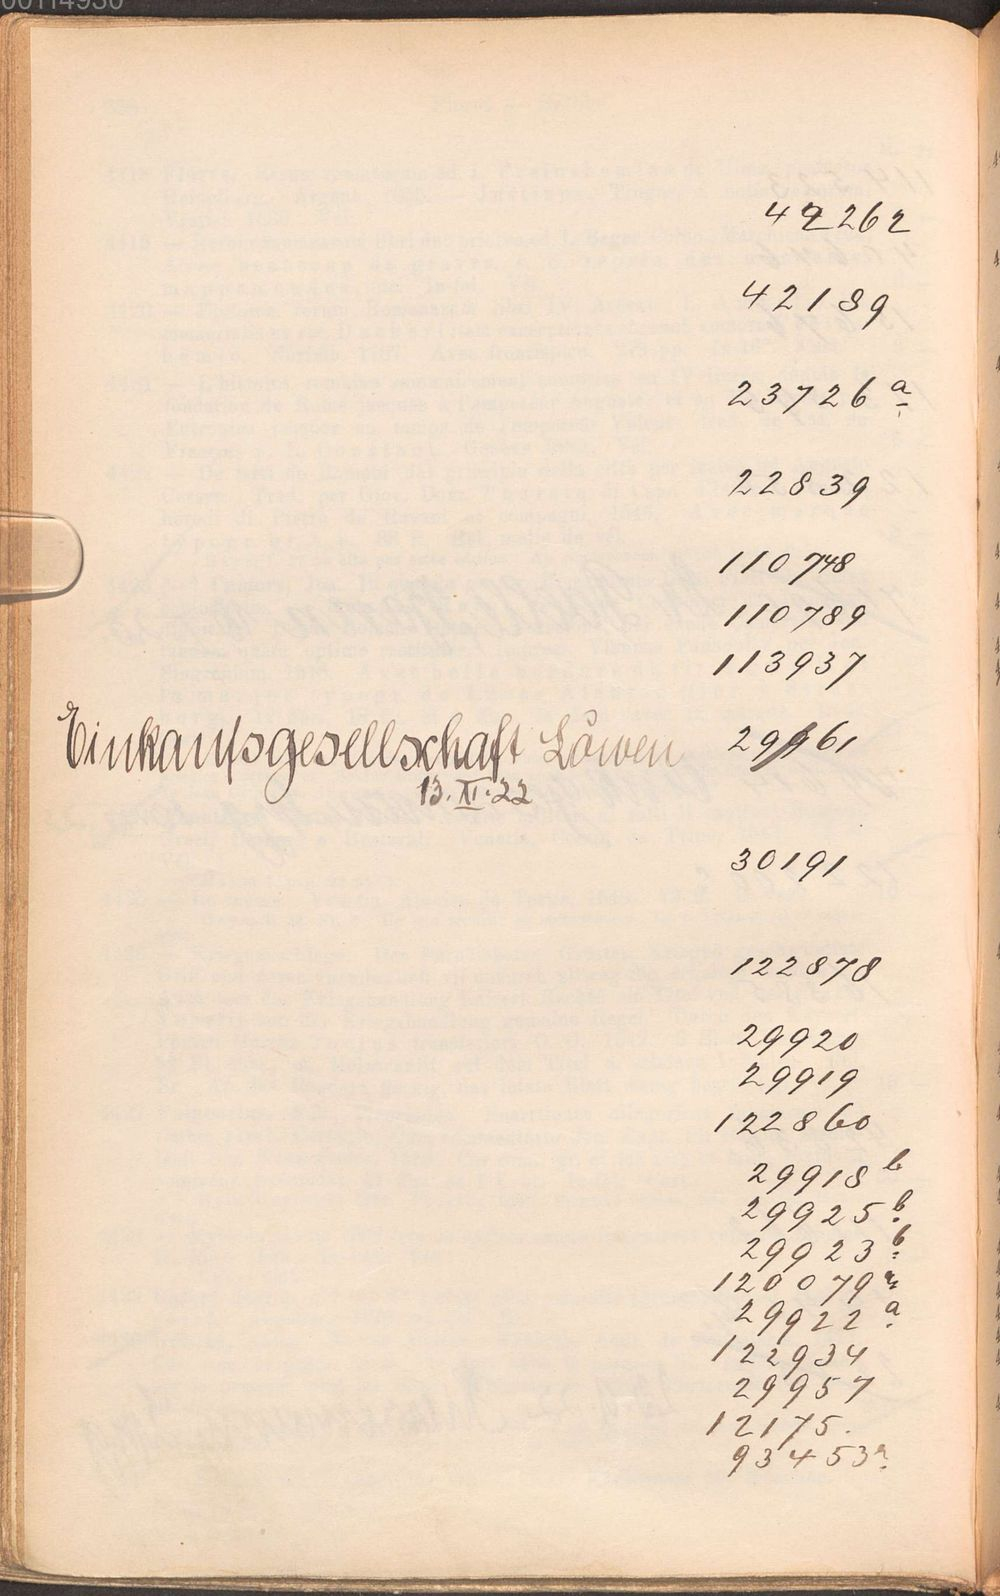 00114930
42262
42189
23726 a
22839
110748
110789
113937
Einkaufsgesellschaft Löwen 29961
13. XI. 22
30191
122878
29920
29919
122860
29918 b
29925 b
29923 b
120079 a
29922 a
122934
29957
12175.
93453 a